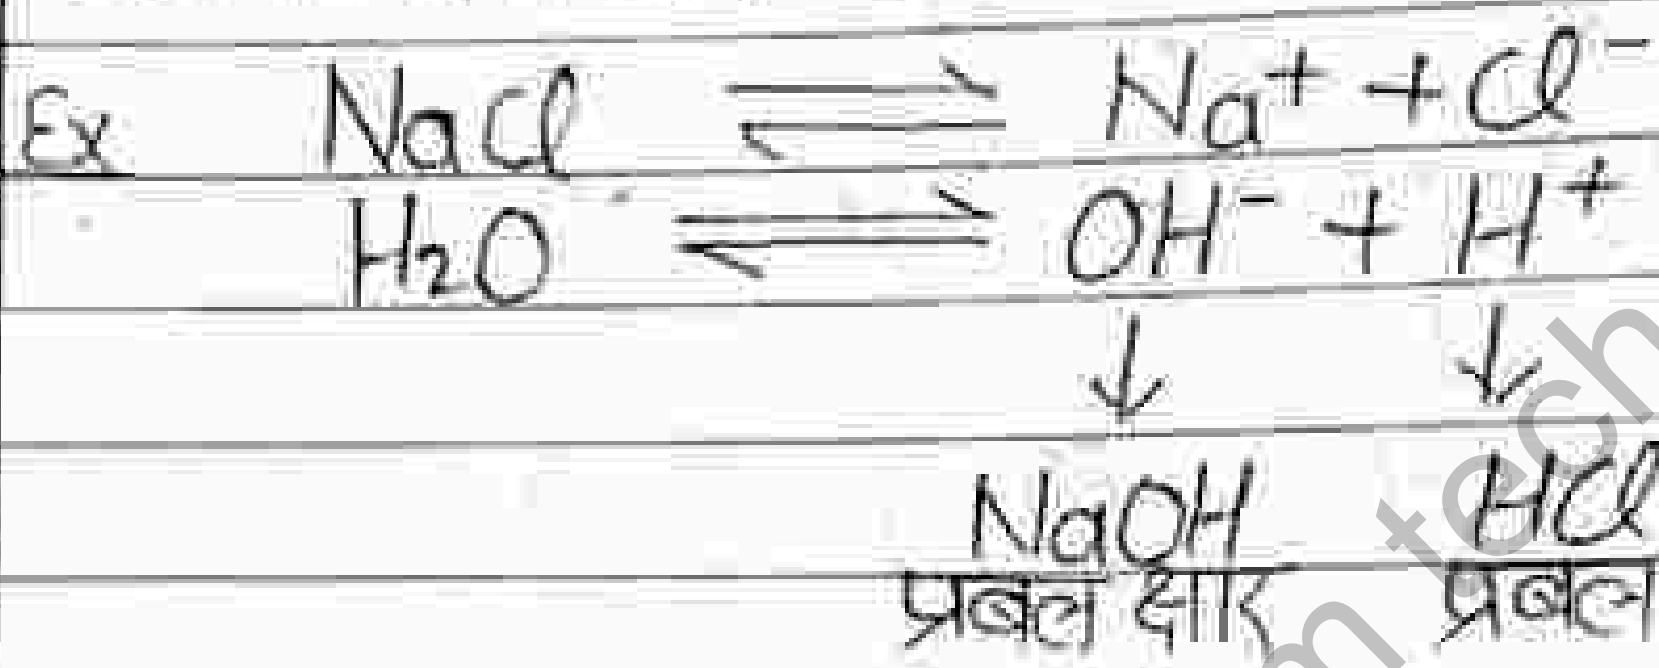 Ex NaCl ⇌ Na⁺ + Cl⁻
H₂O ⇌ OH⁻ + H⁺
↓ ↓
NaOH HCl
प्रबल क्षार प्रबल
tech
m